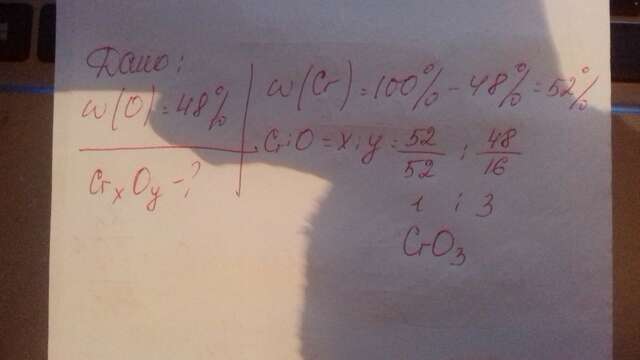 Дано:
w(O)=48%
CrxOy-?
w(Cr)=100%-48%=52%
Cr:O=x:y=52/52:48/16
1:3
CrO3